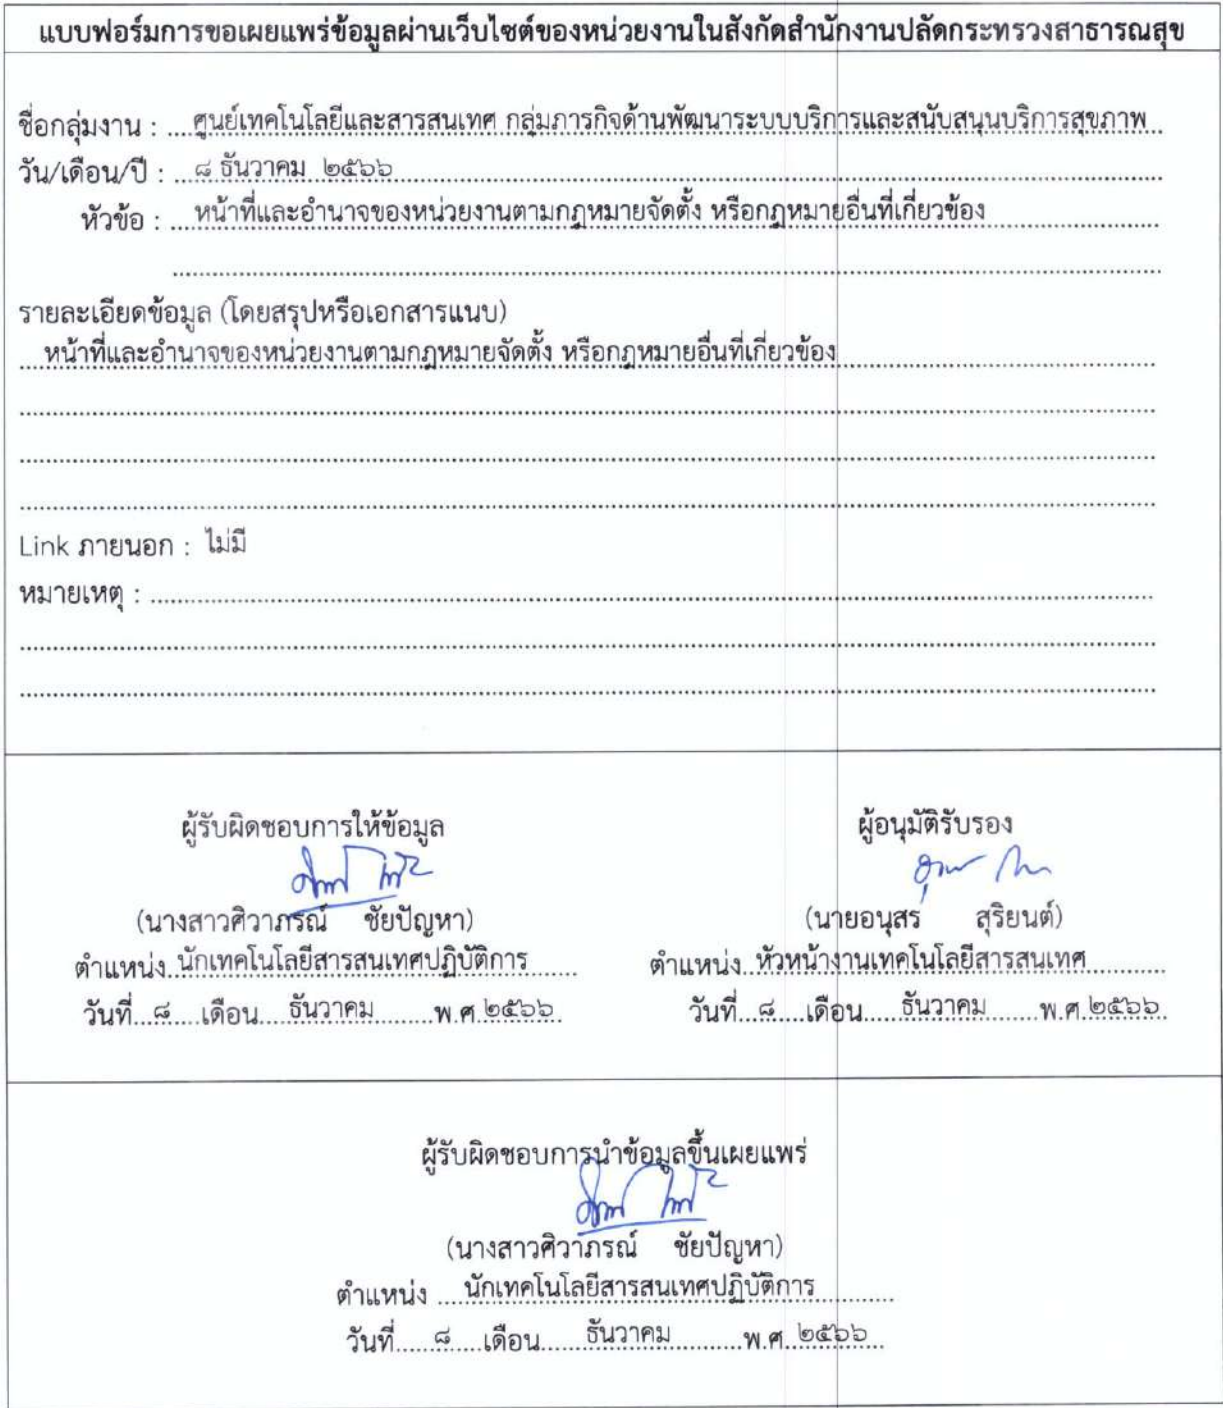 แบบฟอร์มการขอเผยแพร่ข้อมูลผ่านเว็บไซต์ของหน่วยงานในสังกัดสำนักงานปลัดกระทรวงสาธารณสุข
ชื่อกลุ่มงาน : ....ศูนย์เทคโนโลยีและสารสนเทศ กลุ่มภารกิจด้านพัฒนาระบบบริการและสนับสนุนบริการสุขภาพ...
วัน/เดือน/ปี : ...๘ ธันวาคม ๒๕๖๖...
หัวข้อ : ...หน้าที่และอำนาจของหน่วยงานตามกฎหมายจัดตั้ง หรือกฎหมายอื่นที่เกี่ยวข้อง...
รายละเอียดข้อมูล (โดยสรุปหรือเอกสารแนบ)
...หน้าที่และอำนาจของหน่วยงานตามกฎหมายจัดตั้ง หรือกฎหมายอื่นที่เกี่ยวข้อง...
Link ภายนอก : ไม่มี
หมายเหตุ : ...
ผู้รับผิดชอบการให้ข้อมูล
(นางสาวศิวาภรณ์ ชัยปัญหา)
ตำแหน่ง..นักเทคโนโลยีสารสนเทศปฏิบัติการ......
วันที่...๘....เดือน....ธันวาคม.......พ.ศ.๒๕๖๖.
ผู้อนุมัติรับรอง
(นายอนุสร สุริยนต์)
ตำแหน่ง..หัวหน้างานเทคโนโลยีสารสนเทศ.........
วันที่...๘....เดือน.....ธันวาคม.......พ.ศ.๒๕๖๖.
ผู้รับผิดชอบการนำข้อมูลขึ้นเผยแพร่
(นางสาวศิวาภรณ์ ชัยปัญหา)
ตำแหน่ง ....นักเทคโนโลยีสารสนเทศปฏิบัติการ..........
วันที่......๘.....เดือน.......ธันวาคม...........พ.ศ..๒๕๖๖..